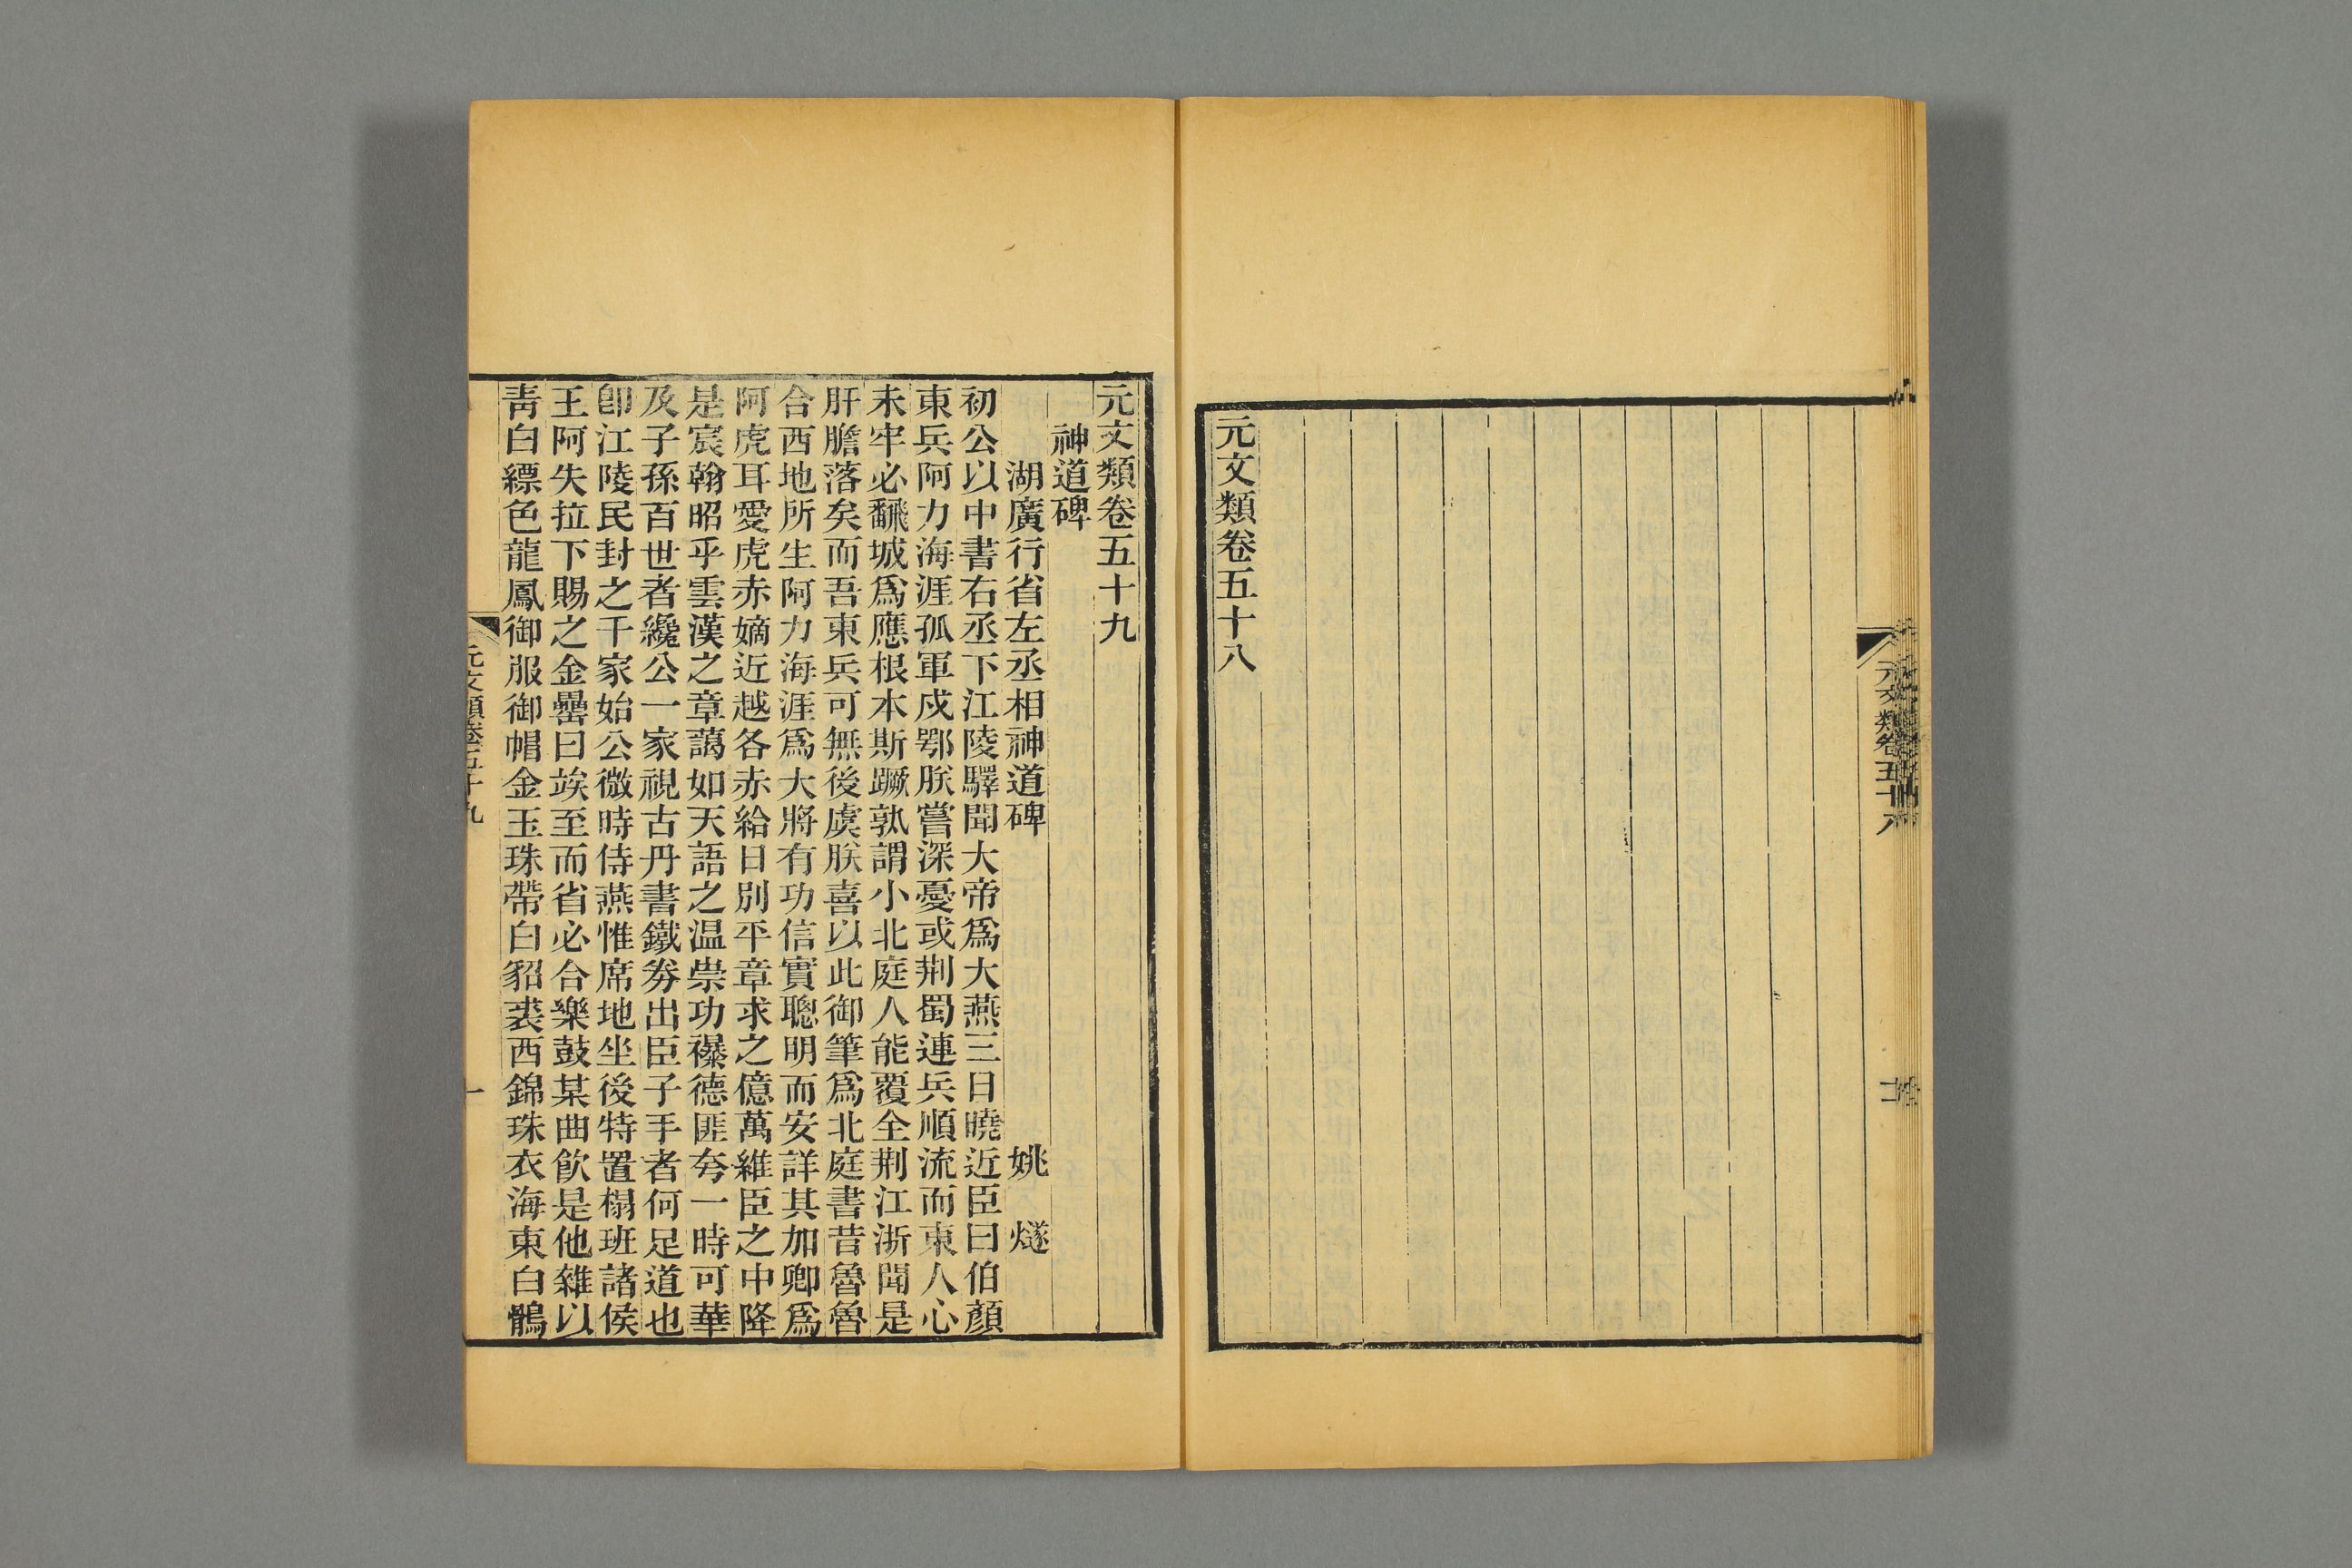 元文類卷五十八
元文類卷五十九
神道碑
湖廣行省左丞相神道碑　姚　燧
初公以中書右丞下江陵驛聞大帝爲大燕三日曉近臣曰伯顏
東兵阿力海涯孤軍戍鄂朕嘗深憂或荆蜀連兵順流而東人心
未牢必翻城爲應根本斯蹶孰謂小北庭人能覆全荆江浙聞是
肝膽落矣而吾東兵可無後虞朕喜以此御筆爲北庭書昔魯魯
合西地所生阿力海涯爲大將有功信實聰明而安詳其加卿爲
阿虎耳愛虎赤嫡近越各赤給日別平章求之億萬維臣之中降
是宸翰昭乎雲漢之章藹如天語之温祟功襮德匪夸一時可華
及子孫百世者纔公一家視古丹書鐵劵出臣子手者何足道也
卽江陵民封之千家始公微時侍燕惟席地坐後特置榻班諸侯
王阿失拉下賜之金罍曰竢至而省必合樂鼓某曲飮是他雜以
靑白縹色龍鳳御服御帽金玉珠帶白貂裘西錦珠衣海東白鶻
元文類卷五十九
一